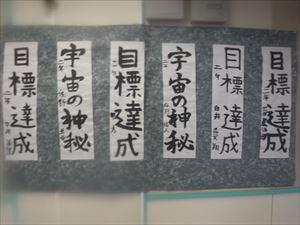 目標達成
二年
宇宙の神秘
二年
目標達成
二年 白井
宇宙の神秘
二年
目標達成
二年
目標達成
二年